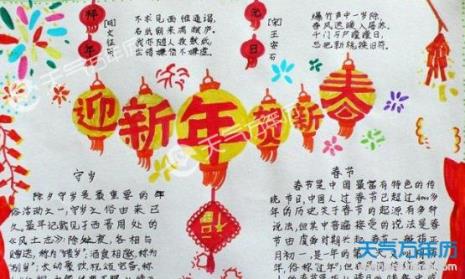 拜年
[明]
文征明
不求见面惟通谒
名纸朝来满敝庐
我亦随人投数纸
世情嫌简不嫌虚
元日
[宋]
王安石
爆竹声中一岁除
春风送暖入屠苏
千门万户曈曈日
总把新桃换旧符
迎新年贺新春
守岁
除夕守岁是最重要的年
俗活动之一，守岁之俗由来已
久。最早记载见于西晋周处的
《风土志》除夕夜，各相与
赠送，称为"馈岁"酒食相邀，称为
春节
春节是中国最富有特色的传
统节日，中国人过春节已超过4000多
年的历史，关于春节的起源有多种
说法，但其中普遍接受的说法是春
节由虞舜时期兴起
月初一，是一年的
福
天气万年历